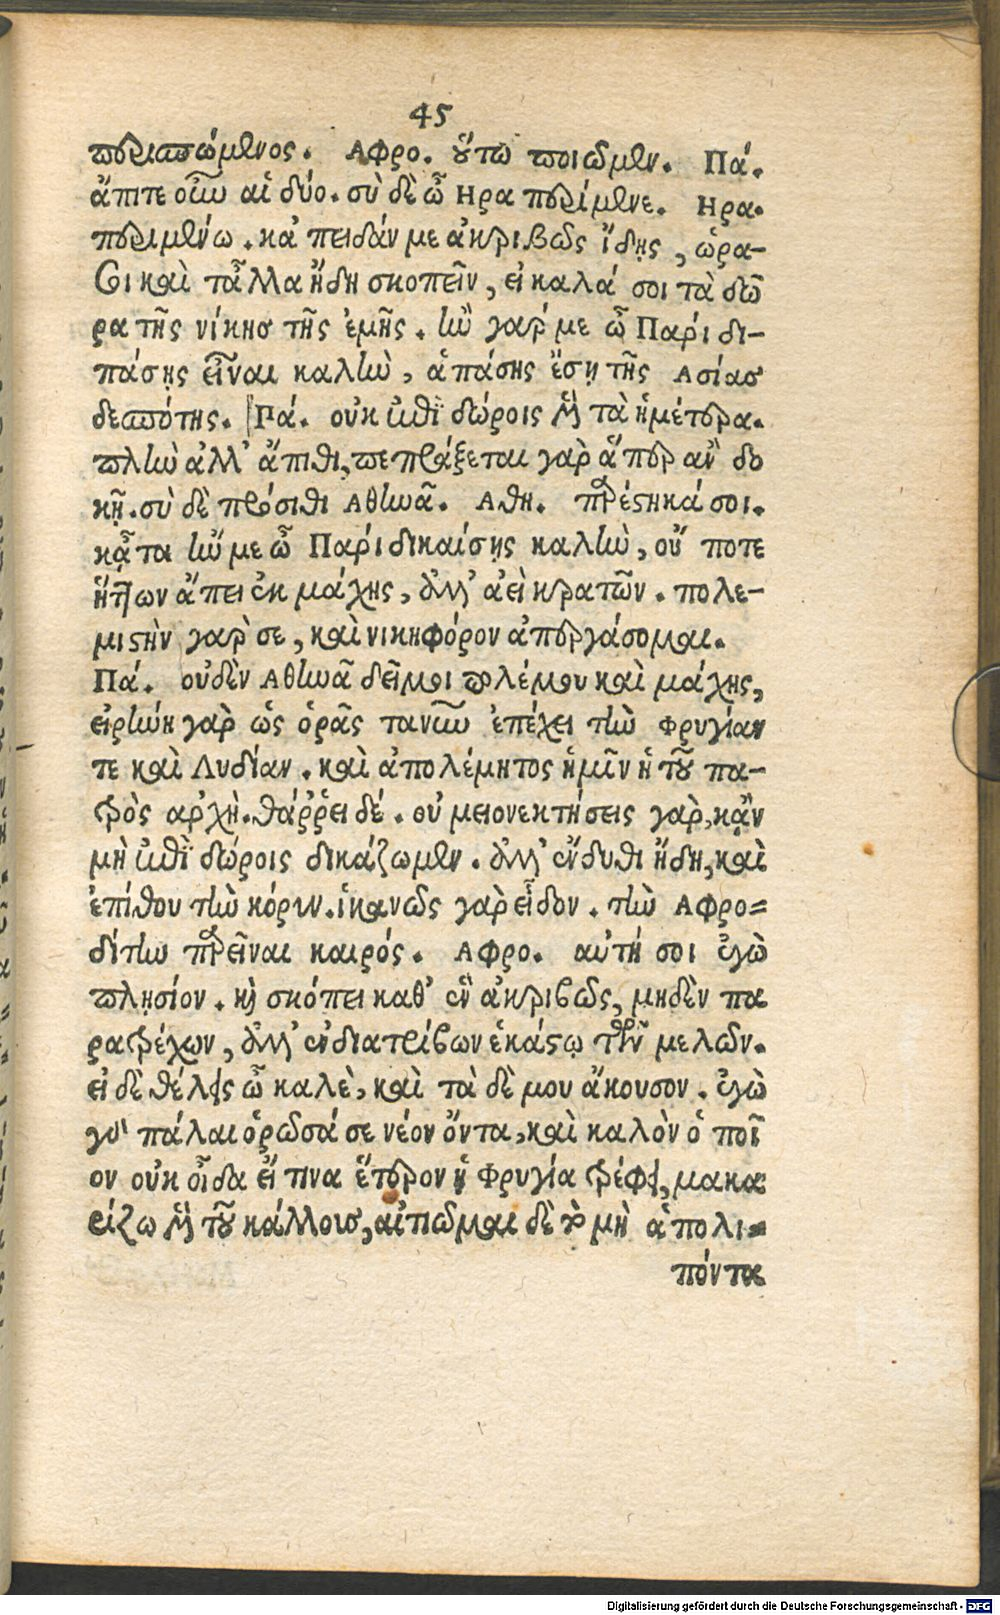 45
περισπώμενος. Αφρο. οὕτω ποιῶμεν. Πά.
ἄπιτε οὖν αἱ δύο. σὺ δὲ ὦ Ηρα περίμενε. Ηρα.
περιμενῶ. κἀ πειδάν με ἀκριβῶς ἴδῃς, ὥρα-
σι καὶ τἆλλα ἤδη σκοπεῖν, εἰ καλά σοι τὰ δῶ
ρα τῆς νίκης τῆς ἐμῆς. ἢν γάρ με ὦ Παρί δι-
πάσῃς εἶναι καλὴν, ἁπάσης ἔσῃ τῆς Ασίας
δεσπότης. Πά. οὐκ ἐπὶ δώροις μὲν τὰ ἡμέτερα.
πλὴν ἀλλ' ἄπιθι, πεπράξεται γὰρ ἅπερ ἂν δο
κῇ. σὺ δὲ πρόσιθι Αθηνᾶ. Αθη. παρέστηκά σοι.
κᾆτα ἢν με ὦ Παρί δικαίσῃς καλὴν, οὔ ποτε
ἥττων ἄπει ἐκ μάχης, ἀλλ' ἀεὶ κρατῶν. πολε-
μιστὴν γάρ σε, καὶ νικηφόρον ἀπεργάσομαι.
Πά. οὐδὲν Αθηνᾶ δεῖ μοι πολέμου καὶ μάχης,
εἰρήνη γὰρ ὡς ὁρᾷς τανῦν ἐπέχει τὴν Φρυγίαν
τε καὶ Λυδίαν. καὶ ἀπολέμητος ἡμῖν ἡ τοῦ πα-
τρὸς αρχὴ. θάῤῥει δέ. οὐ μειονεκτήσεις γὰρ, κἂν
μὴ ἐπὶ δώροις δικάζωμεν. ἀλλ' ἔνδυθι ἤδη, καὶ
ἐπίθου τὴν κόρυν. ἱκανῶς γὰρ εἶδον. τὴν Αφρο=
δίτην παρεῖναι καιρός. Αφρο. αὐτή σοι ἐγὼ
πλησίον. καὶ σκόπει καθ' ἓν ἀκριβῶς, μηδὲν πα
ρατρέχων, ἀλλ' ἐνδιατρίβων ἑκάστῳ τῶν μελῶν.
εἰ δὲ θέλεις ὦ καλὲ, καὶ τὰ δὲ μου ἄκουσον. ἐγὼ
γὰρ πάλαι ὁρῶσά σε νέον ὄντα, καὶ καλὸν ὁ ποῖ
ον οὐκ οἶδα εἴ τινα ἕτερον ἡ Φρυγία τρέφει, μακα
ρίζω μὲν τοῦ κάλλους, αἰτιῶμαι δὲ τὸ μὴ ἀπολι=
πόντα
Digitalisierung gefördert durch die Deutsche Forschungsgemeinschaft - DFG